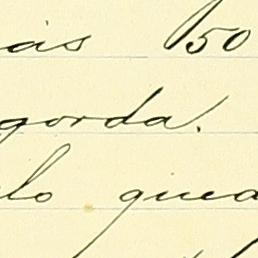 ás 150
gorda.
lo que